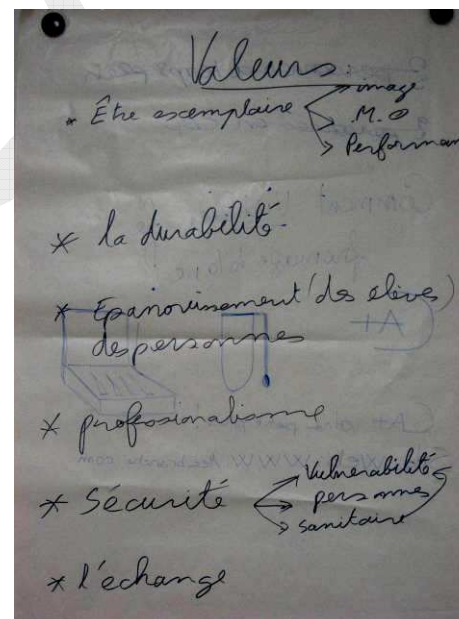 Valeurs
* Être exemplaire → image
→ M.O
→ Performan
* la durabilité
* Epanouissement (des elèves)
des personnes
* profossionalisme
* Sécurité → Vulnerabilité
personnes
→ sanitaire
* l'échange